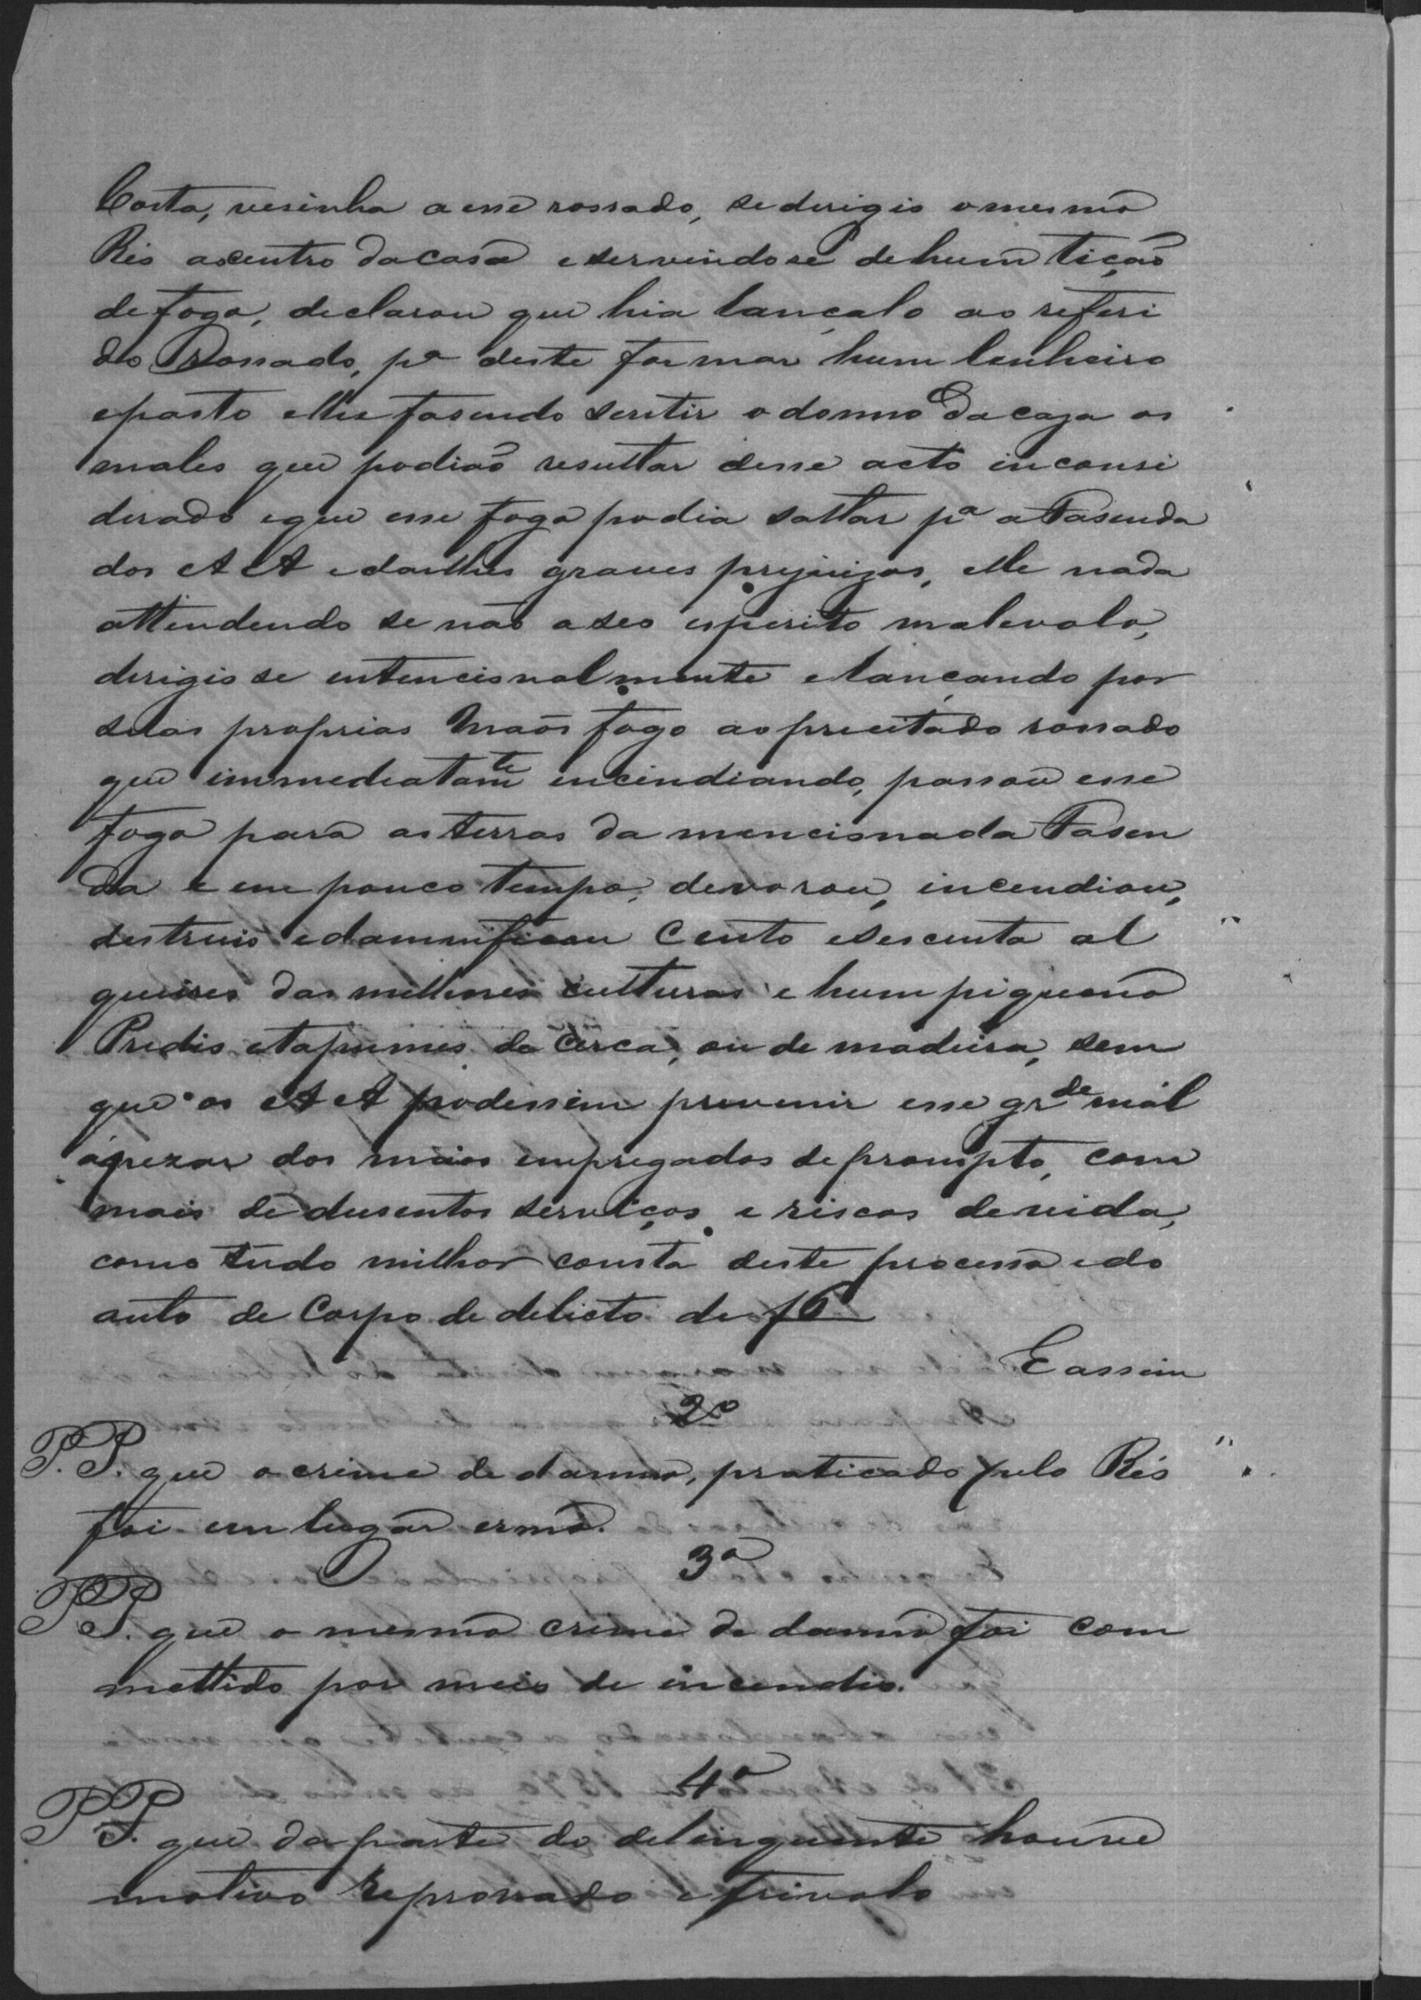 Costa, vesinha a esse rossado, se derigio o mesmo
Réo ao centro da casa e servindose de hum tição
de fogo, declarou que hia lançalo ao referi
do Rossado, pª deste formar hum lenheiro
e pasto e lhe fasendo sentir o donno da caza os
males que podiaõ resultar desse acto inconsi
derado e que esse fogo podia saltar pª a Fasenda
dos AA e darlhes graves prejuizos, elle nada
attendendo se naõ a seo esperito malevolo,
derigio se entencionalmente e lançando por
suas proprias mãos fogo ao precitado rossado
que immediatamte incendiando, passou esse
fogo para as terras da mencionada Fasen
da e em pouco tempo, devorou, incendiou,
destruio e damnificou Cento e sescenta al
queires das milhores culturas e hum piqueno
Predio e tapumes de cerca, ou de madeira, sem
que os AA podessem prevenir esse grde mal
apezar dos meios empregados de prompto, com
mais de dusentos serviços e riscos de vida,
como tudo milhor consta deste processo e do
auto de Corpo de delicto de f6
E assim
2º
P. P. que o crime de damno, praticado pelo Réo
foi em lugar ermo.
3º
P P. que o mesmo crime de damno foi com
mettido por meio de incendio.
4º
P P. que da parte do delinquente houve
motivo reprovado e frivolo